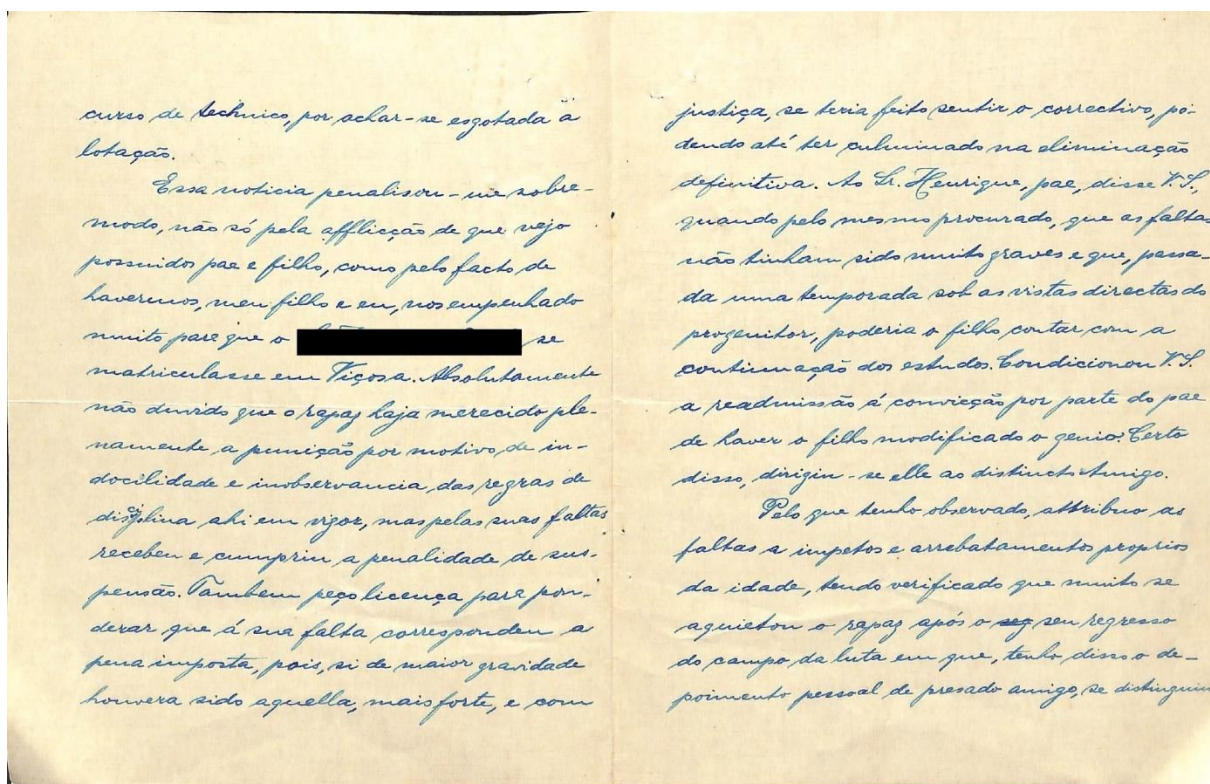 curso de technico, por achar-se esgotada a
lotação.
Essa noticia penalisou-me sobre-
modo, não só pela afflicção de que vejo
possuidos pae e filho, como pelo facto de
havermos, meu filho e eu, nos empenhado
muito para que o se
matriculasse em Viçosa. Absolutamente
não duvido que o rapaz haja merecido ple-
namente a punição por motivo de in-
docilidade e inobservancia das regras de
disciplina ahi em vigor, mas pelas suas faltas
recebeu e cumpriu a penalidade de sus-
pensão. Tambem peço licença para pon-
derar que á sua falta correspondeu a
pena imposta, pois, si de maior gravidade
houvera sido aquella, mais forte, e com
justiça, se teria feito sentir o correctivo, po-
dendo até ter culminado na eliminação
definitiva. Ao Sr. Henrique, pae, disse V. S.,
quando pelo mesmo procurado, que as faltas
não tinham sido muito graves e que, passa-
da uma temporada sob as vistas directas do
progenitor, poderia o filho contar com a
continuação dos estudos. Condicionou V. S.
a readmissão á convicção por parte do pae
de haver o filho modificado o genio. Certo
disso, dirigiu-se elle ao distincto Amigo.
Pelo que tenho observado, attribuo as
faltas a impetos e arrebatamentos proprios
da idade, tendo verificado que muito se
aquietou o rapaz após o seg seu regresso
do campo da luta em que, tenho disso o de-
poimento pessoal de presado amigo, se distinguiu